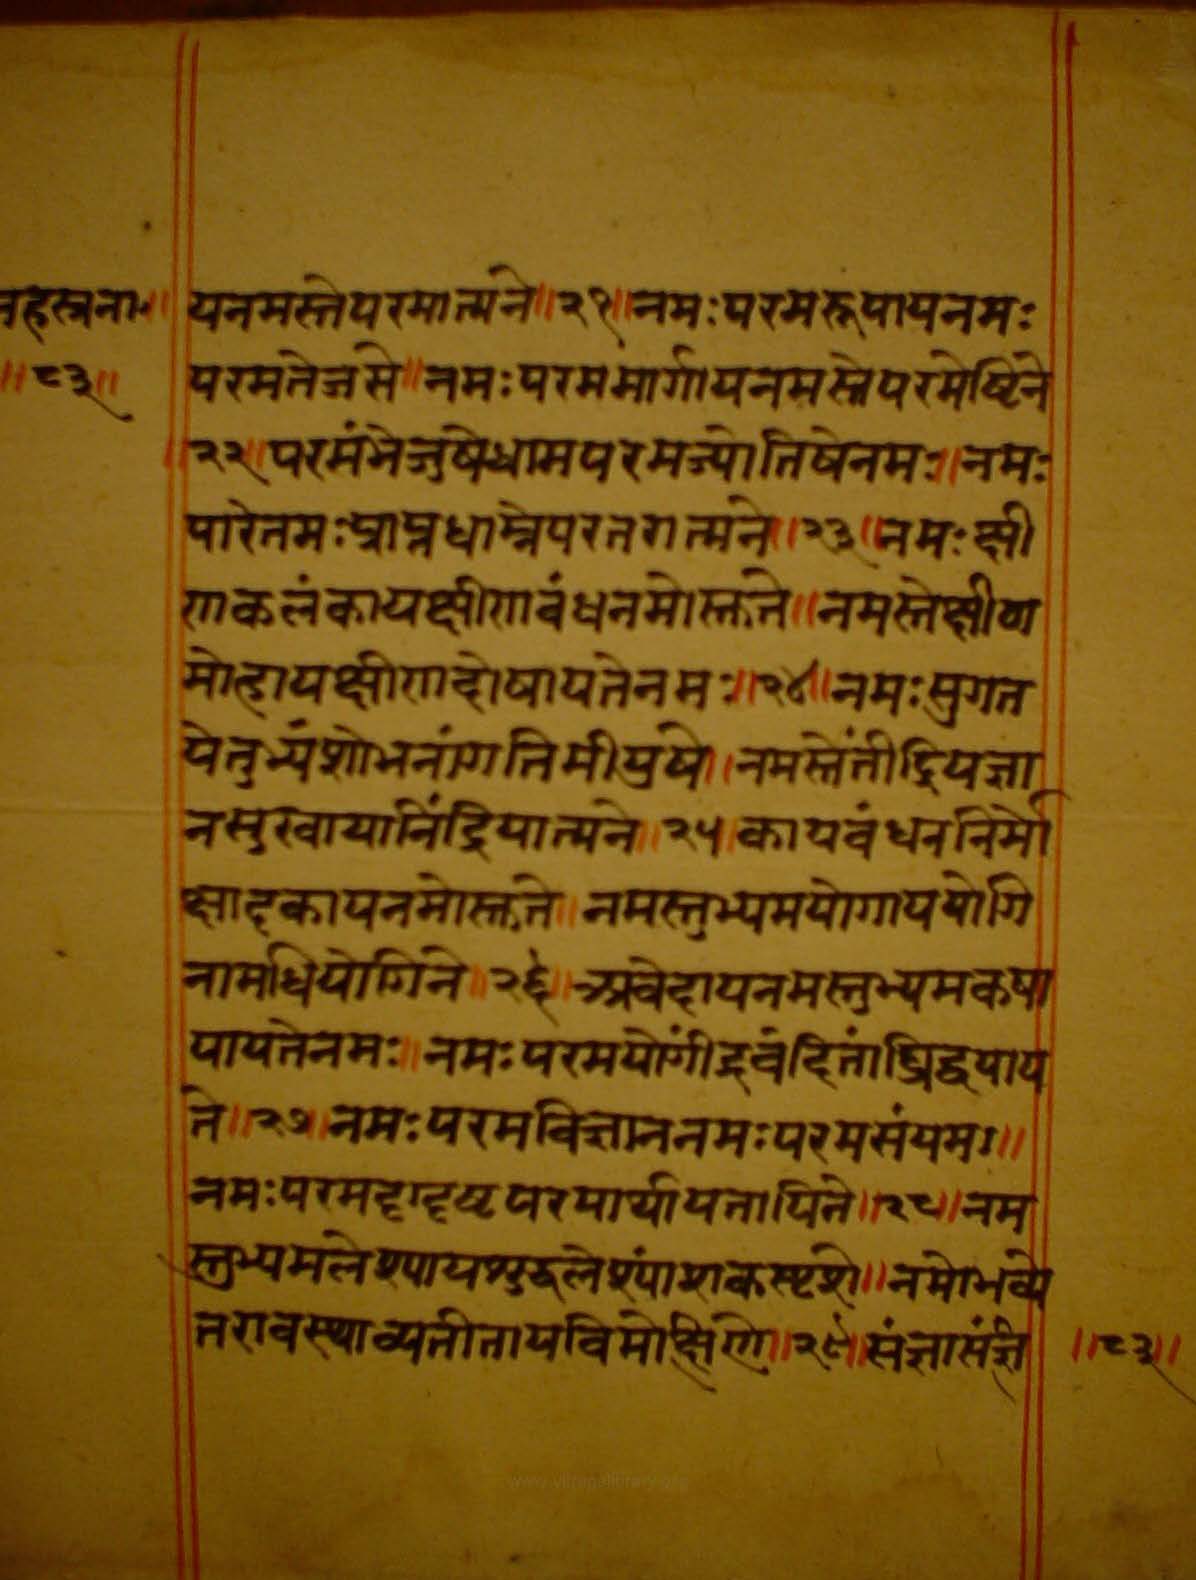 नहस्त्रना॰॥ यनमस्तेपरमात्मने॥२१॥नमःपरमरूपायनमः
॥८३॥ परमतेजसे॥नमःपरममार्गायनमस्तेपरमेष्टिने
॥२२॥परमंभेजुषेधामपरमज्योतिषेनमः॥नमः
पारेतमःप्राप्तधाम्नेपरतरात्मने॥२३॥नमःक्षी
णकलंकायक्षीणबंधनमोस्तुते॥नमस्तेक्षीण
मोहायक्षीणदोषायतेनमः॥२४॥नमःसुगत
येतुभ्यंशोभनांगतिमीयुषे॥नमस्तेंतींद्रियज्ञा
नसुखायानिंद्रियात्मने॥२५॥कायबंधननिर्मो
क्षादकायनमोस्तुते॥नमस्तुभ्यमयोगाययोगि
नामधियोगिने॥२६॥अवेदायनमस्तुभ्यमकषा
यायतेनमः॥नमःपरमयोगींद्रवंदितांघ्रिद्वयाय
ते॥२७॥नमःपरमविज्ञाननमःपरमसंयमः॥
नमःपरमदृग्दृष्टपरमार्थायतायिने॥२८॥नम
स्तुभ्यमलेश्यायशुद्धलेश्यांशकस्पृशे॥नमोभव्ये
तरावस्थाव्यतीतायविमोक्षिणे॥२९॥संज्ञासंज्ञि ॥८३॥